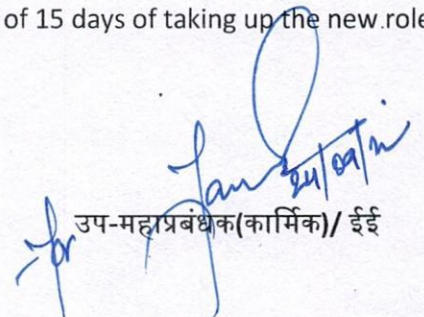 of 15 days of taking up the new role
For
उप-महाप्रबंधक(कार्मिक)/ ईई